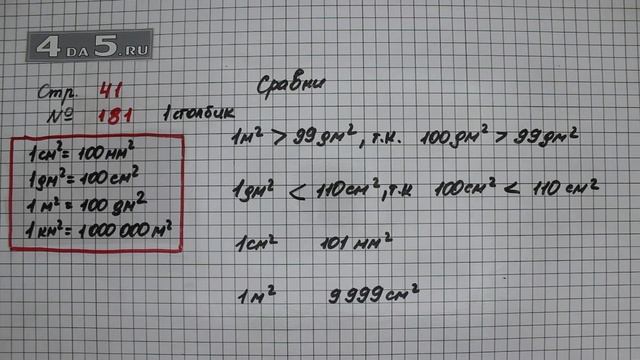 4 DA 5.RU
Стр. 41
№ 181 1 столбик
1 см² = 100 мм²
1 дм² = 100 см²
1 м² = 100 дм²
1 км² = 1 000 000 м²
Сравни
1 м² > 99 дм², т.к. 100 дм² > 99 дм²
1 дм² < 110 см², т.к 100 см² < 110 см²
1 см² 101 мм²
1 м² 9 999 см²